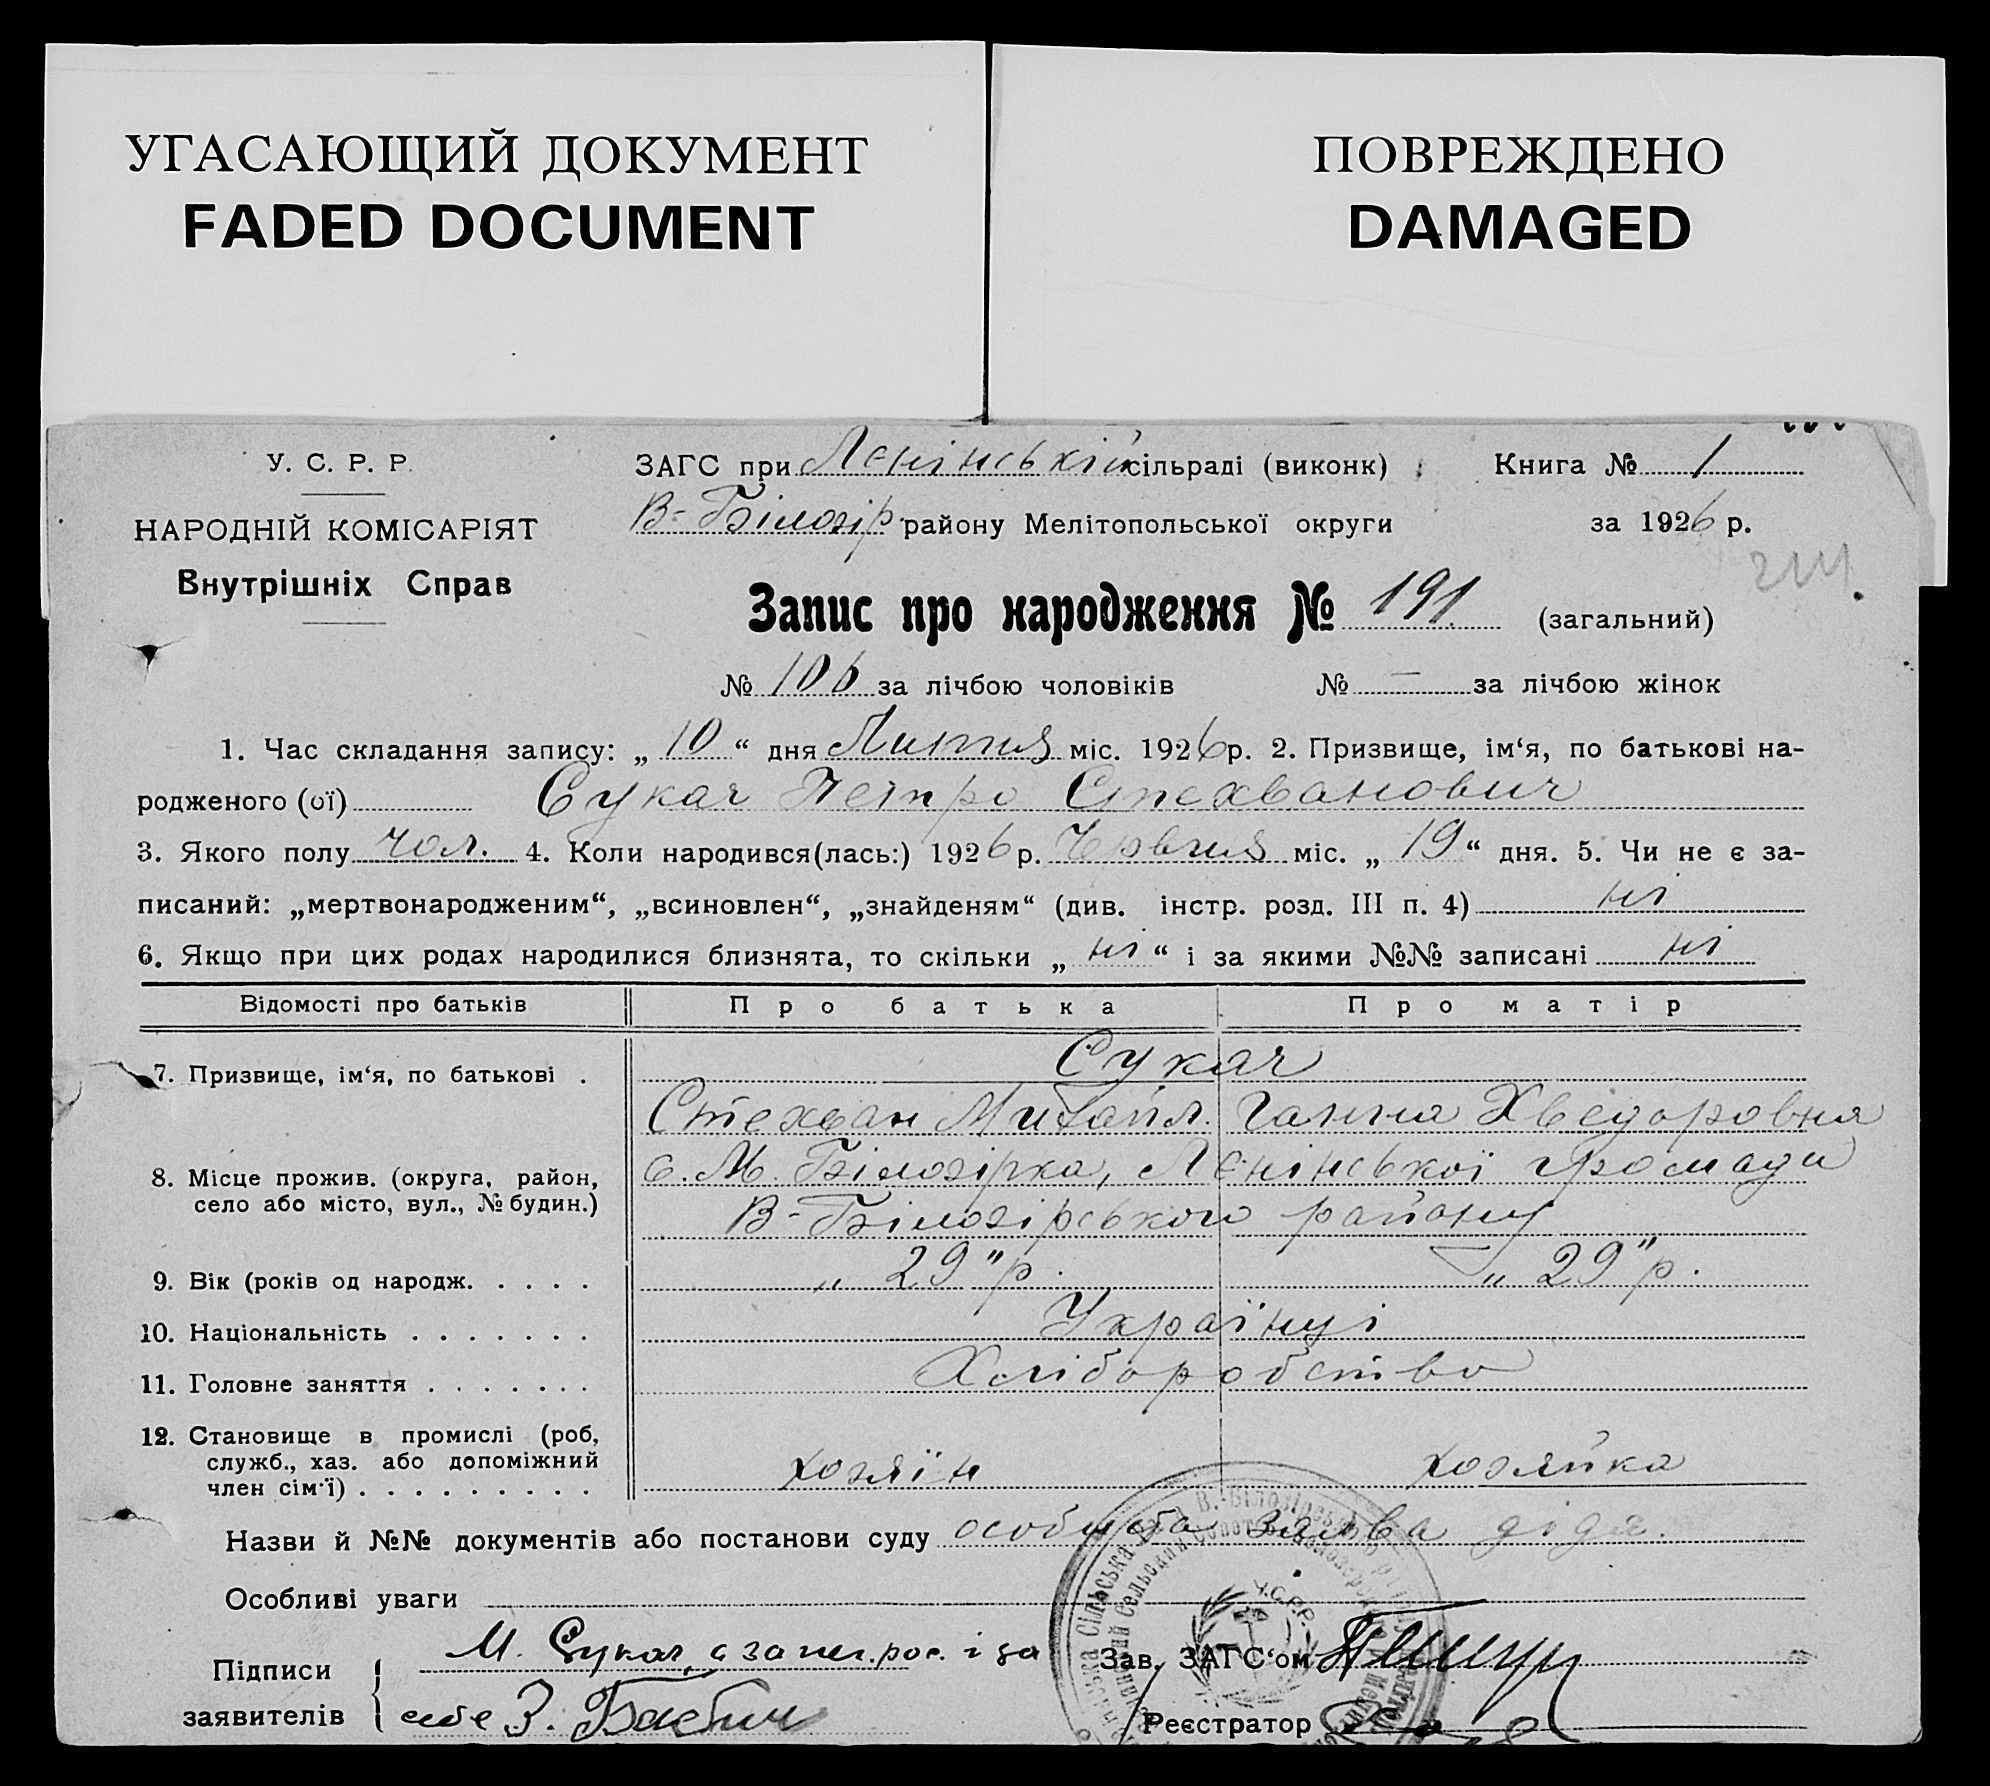 УГАСАЮЩИЙ ДОКУМЕНТ
FADED DOCUMENT
ПОВРЕЖДЕНО
DAMAGED
У. С. Р. Р.
НАРОДНІЙ КОМІСАРІЯТ
Внутрішніх Справ
ЗАГС при Лєнінській сільраді (виконк) Книга № 1
В-Білозір. району Мелітопольської округи за 1926 р.
Запис про народження № 191 (загальний)
№ 106 за лічбою чоловіків № — за лічбою жінок
1. Час складання запису: „10“ дня Липня міс. 1926 р. 2. Призвище, ім‘я, по батькові на-
родженого (ої) Сукач Петро Стехванович
3. Якого полу чол. 4. Коли народився(лась:) 1926 р. Червня міс. „19“ дня. 5. Чи не є за-
писаний: „мертвонародженим“, „всиновлен“, „знайденям“ (див. інстр. розд. III п. 4) ні
6. Якщо при цих родах народилися близнята, то скільки „ні“ і за якими №№ записані ні
Відомості про батьків Про батька Про матір
7. Призвище, ім‘я, по батькові . Сукач
Стехван Михайл. Ганна Хведоровна
8. Місце прожив. (округа, район, с. М. Білозірка, Лєнінської громади
село або місто, вул., № будин.) В-Білозірського району
9. Вік (років од народж. . . . . „29“ р. „29“ р.
10. Національність . . . . . . . Українці
11. Головне заняття . . . . . . . Хліборобство
12. Становище в промислі (роб,
служб., хаз. або допоміжний хозяїн хозяйка
член сім‘ї) . . . . . . . . .
Назви й №№ документів або постанови суду особиста заява діда.
Особливі уваги
У.С.Р.Р.
Підписи М. Сукач, а за і за Зав. ЗАГС‘ом
заявителів себе З. Бабич Реєстратор